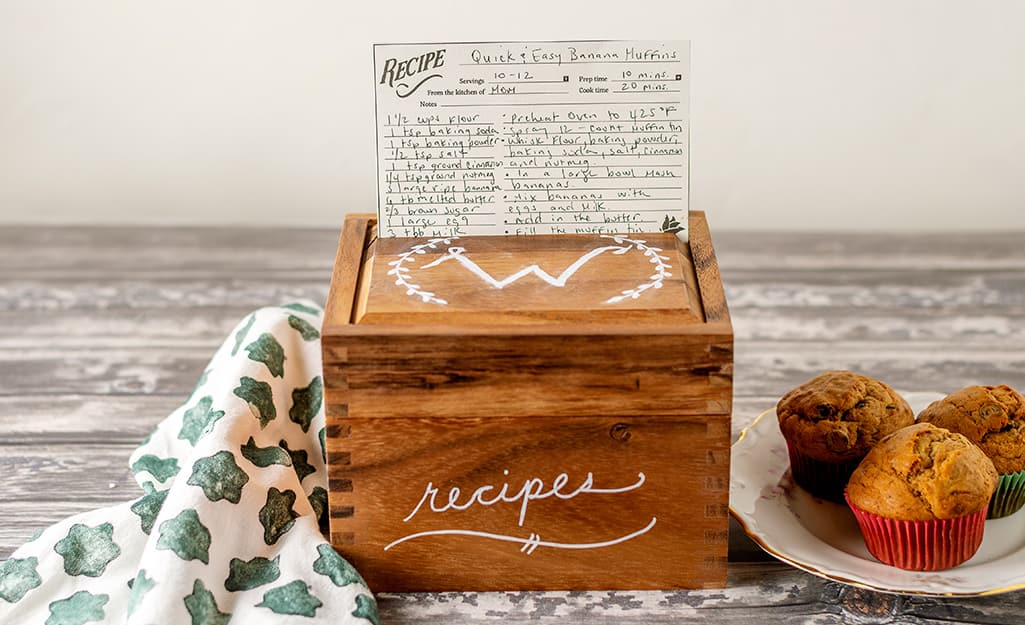 RECIPE Quick & Easy Banana Muffins
Servings 10-12 Prep time 10 mins.
From the kitchen of MOM Cook time 20 mins.
Notes
1 1/2 cups flour
1 tsp baking soda
1 tsp baking powder
1/2 tsp salt
1 tsp ground cinnamon
1/4 tsp ground nutmeg
3 large ripe banana
4 tb melted butter
2/3 brown sugar
1 large egg
3 tbb milk
• Preheat oven to 425°F
• Spray 12-count muffin tin
• Whisk flour, baking powder,
baking soda, salt, cinnamon
and nutmeg.
• In a large bowl mash
bananas.
• Mix bananas with
eggs and milk.
• Add in the butter
• Fill the muffin tin
W
recipes